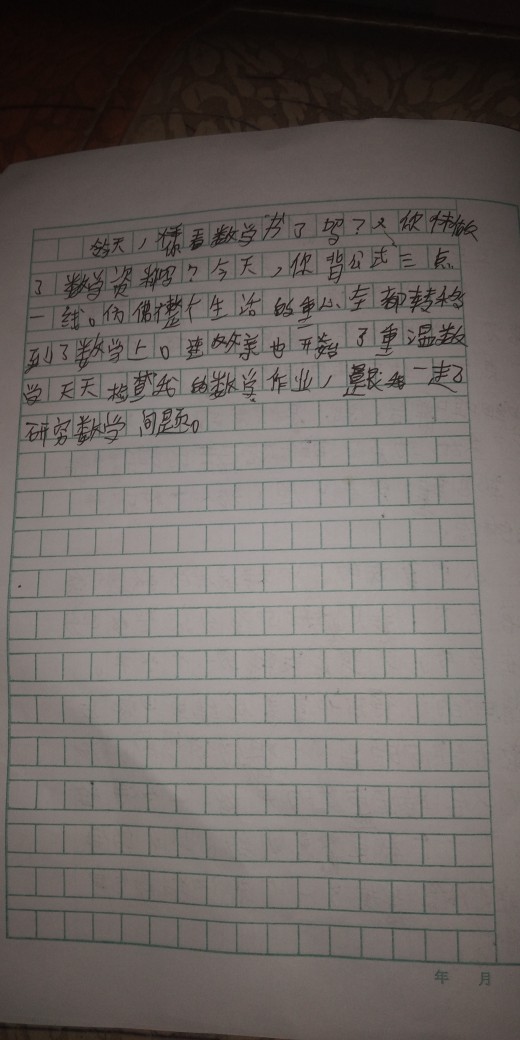 今天,你看数学书了吗?又 你休做
了数学资料吗?今天,你背公式三点
一线。仿佛整个生活的重心全都转移
到了数学上。连父亲也开始了重温数
学天天检查我的数学作业,跟我一起
研究数学问题。
年 月